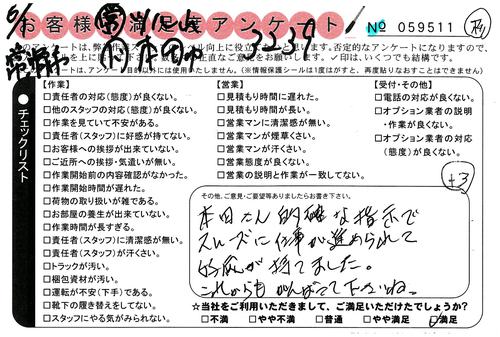 お客様満足度アンケート
3239
№ 059511
杉
のアンケートは、弊
向上に役立
思います。否定的なアンケートになりますので、
を上に
正直なご意見をお願いします。✓印は、いくつでも結構です。
は、アンケート目的以外には使用いたしません。(※情報保護シールは1度はがすと、再度貼りなおすことはできません)
チェックリスト
【作業】
□責任者の対応(態度)が良くない。
□他のスタッフの対応(態度)が良くない。
□作業を見ていて不安がある。
□責任者(スタッフ)に好感が持てない。
□お客様への挨拶が出来ていない。
□ご近所への挨拶・気遣いが無い。
□作業開始前の内容確認がなかった。
□作業開始時間が遅れた。
□荷物の取り扱いが雑である。
□お部屋の養生が出来ていない。
□作業時間が長すぎる。
□責任者(スタッフ)に清潔感が無い。
□責任者(スタッフ)が汗くさい。
□トラックが汚い。
□梱包資材が汚い。
□運転が不安(下手)である。
□靴下の履き替えをしてない。
□スタッフにやる気がみられない。
【営業】
□見積もり時間に遅れた。
□見積もり時間が長い。
□営業マンに清潔感が無い。
□営業マンが煙草くさい。
□営業マンが汗くさい。
□営業態度が良くない。
□営業の説明と作業が一致してない。
【受付・その他】
□電話の対応が良くない。
□オプション業者の説明
・作業が良くない。
□オプション業者の対応
(態度)が良くない。
+3
その他、ご意見・ご要望等ありましたらお書き下さい。
本田さん的確な指示で
スムーズに仕事が進められて
好感が持てました。
これからもがんばって下さいね。
☆当社をご利用いただきまして、ご満足いただけたでしょうか?
□不満 □やや不満 □普通 □やや満足 ☑満足